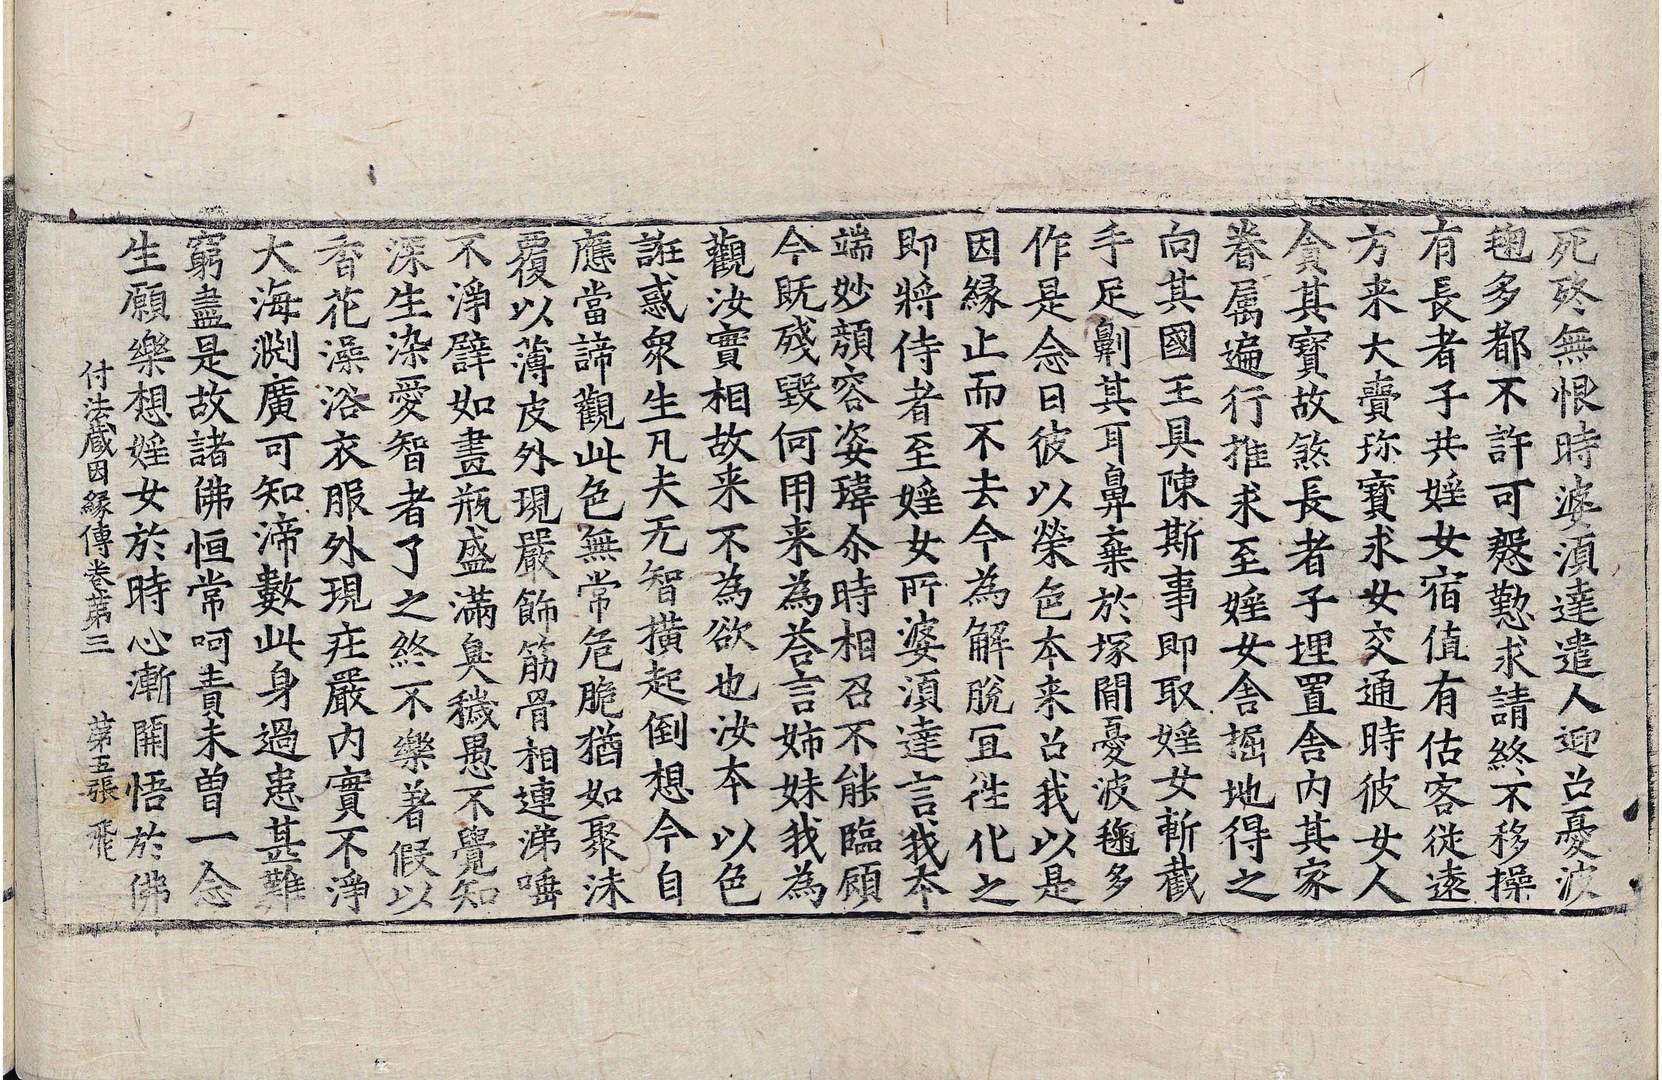 死終無恨時婆湏達遣人迎召憂波
毱多都不許可慇懃求請終不移操
有長者子共婬女宿值有估客從遠
方来大賷珎寶求女交通時彼女人
貪其寶故煞長者子埋置舍内其家
眷属遍行推求至婬女舍掘地得之
向其國王具陳斯事即取婬女斬截
手足劓其耳鼻棄於塚間憂波毱多
作是念曰彼以榮色本来召我以是
因緣止而不去今為解脫冝往化之
即將侍者至婬女所婆湏達言我本
端妙顏容姿瑋尒時相召不能臨顧
今既殘毀何用来為荅言姊妹我為
觀汝實相故来不為欲也汝本以色
誑惑衆生凡夫无智橫起倒想今自
應當諦觀此色無常危脆猶如聚沫
覆以薄皮外現嚴飾筋骨相連涕唾
不淨譬如畫瓶盛滿臭穢愚不覺知
深生染愛智者了之終不樂著假以
香花澡浴衣服外現庄嚴内實不淨
大海渕廣可知渧數此身過患甚難
窮盡是故諸佛恒常呵責未曾一念
生願樂想婬女於時心漸開悟於佛
付法藏因緣傳卷第三　第五張　飛